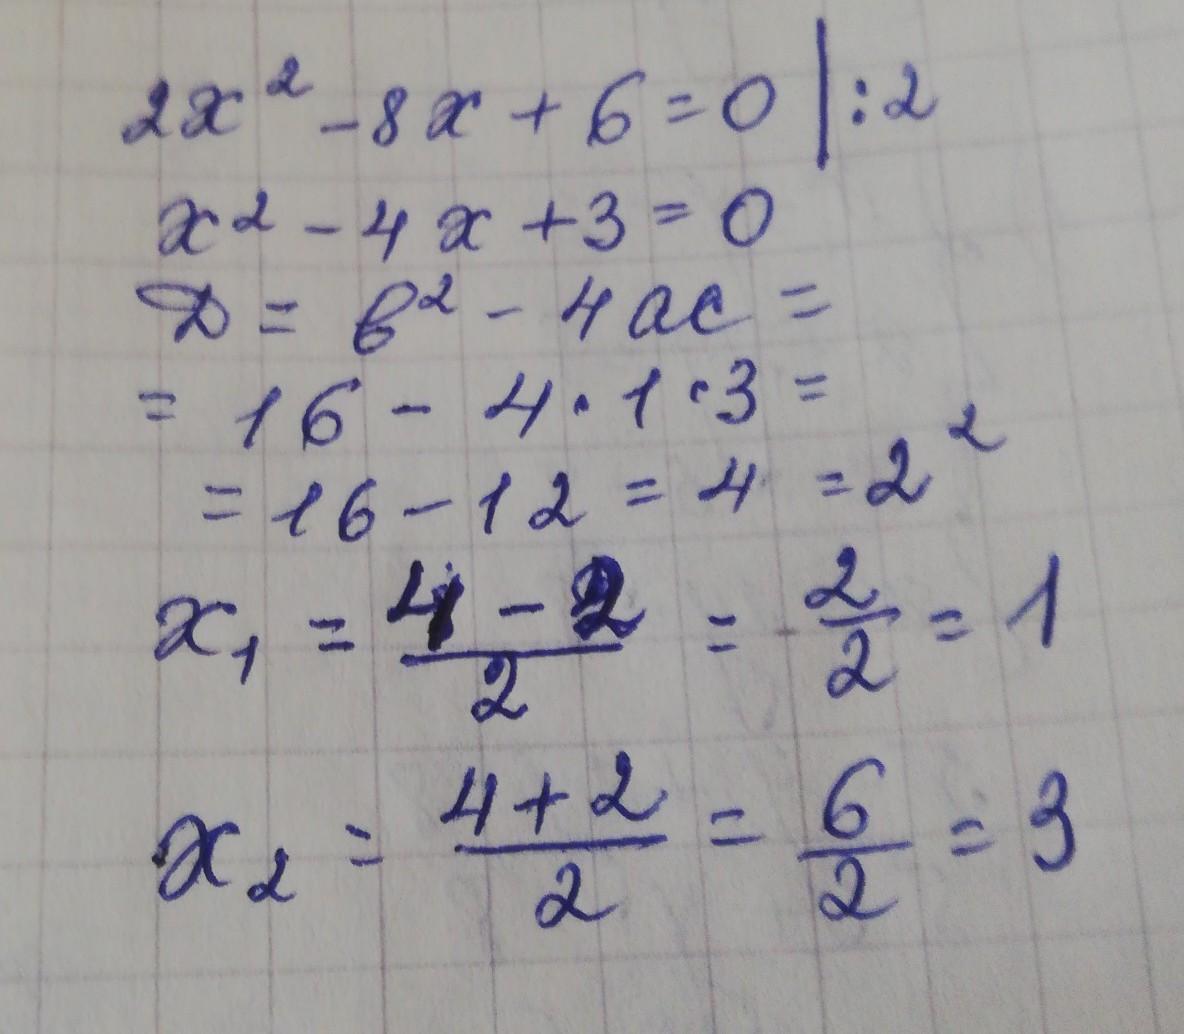 2x² - 8x + 6 = 0 | : 2
x² - 4x + 3 = 0
D = b² - 4ac =
= 16 - 4 · 1 · 3 =
= 16 - 12 = 4 = 2²
x₁ = (4 - 2)/2 = 2/2 = 1
x₂ = (4 + 2)/2 = 6/2 = 3